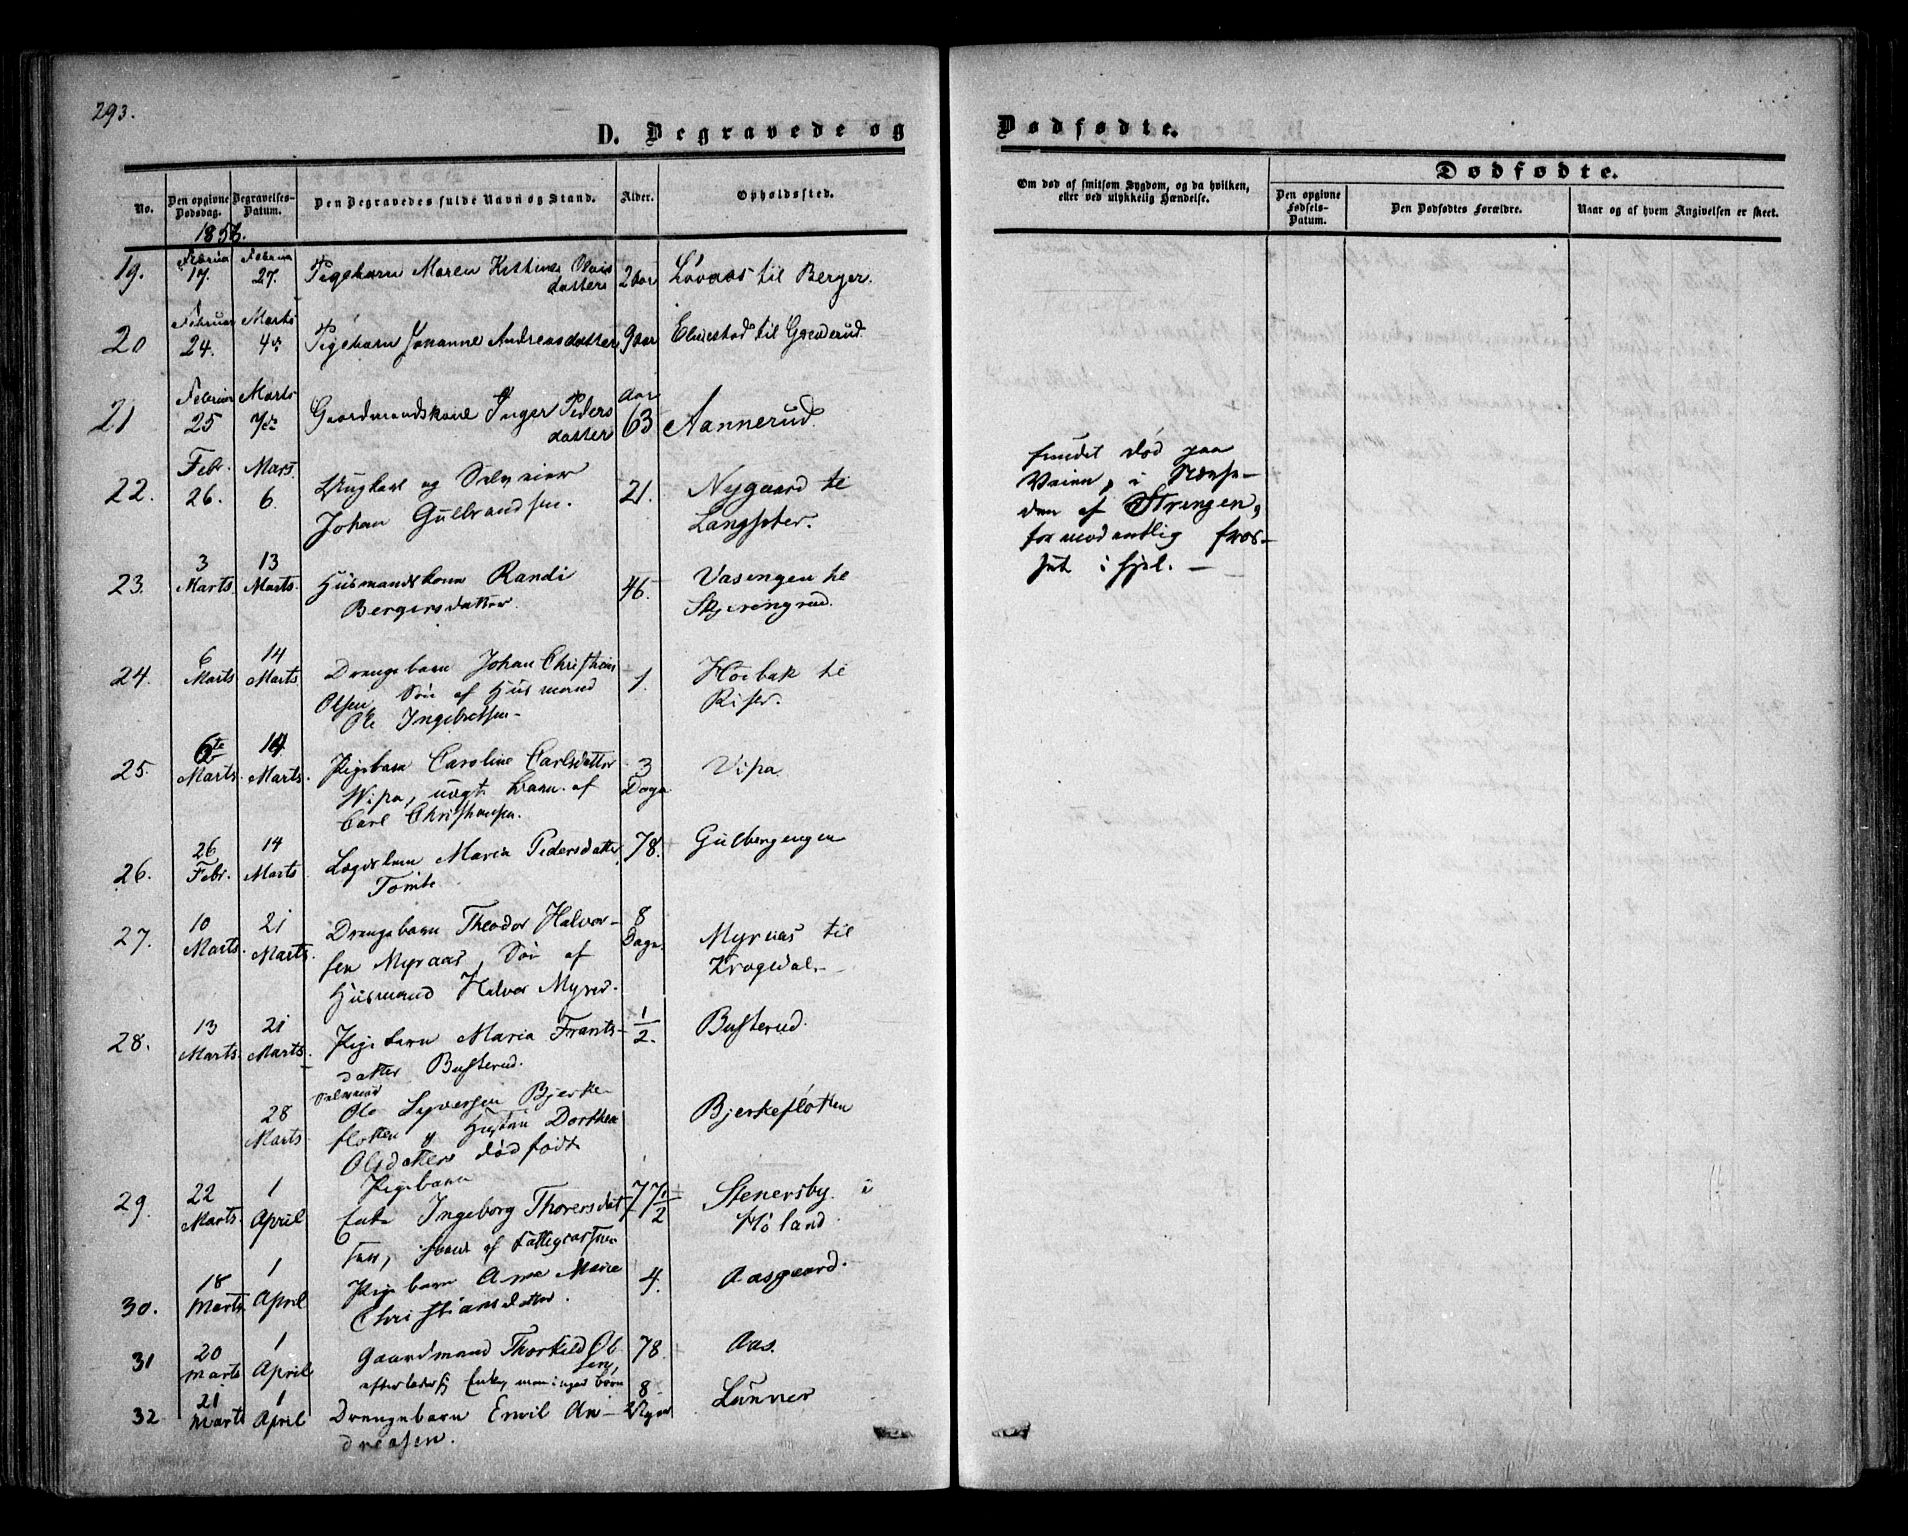 293.
D. Begravede og
Dødfødte.
No.
Den opgivne Dødsdag.
Begravelses-Datum.
Den Begravedes fulde Navn og Stand.
Alder.
Opholdssted.
Om død af smitsom Sygdom, og da hvilken,
eller ved ulykkelig Hændelse.
Dødfødte.
Den opgivne Fødsels-Datum.
Den Dødfødtes Forældre.
Naar og af hvem Angivelsen er skeet.
19. 17. 27. Pigebarn Maren
datter 2 aar Løvaas til Berger.
Februar Marts
20 24. 4de Pigebarn Johanne Andreasdatter 9 aar til
Februar Marts Aar
21 25 7de Gaardmandskone Inger Peders
datter 63 Aannerud.
Febr. Mars
22. 26. 6. Ungkarl og
Johan Gulbrandsen. 21. Nygaard til
fundet død paa
Veien, i Nærhe-
den af Strengen,
formodentlig fros-
set i hjel. –
3 13
23. Marts Marts. Husmandskone Randi
Bergersdatter. 46. Vasengen til
Skjerengrud.
6 14
24. Marts Marts. Drengebarn Johan Christian
Olsen, Søn af Husmand
Ole Ingebretsen – 1. Høibak til
Riser.
6te 14
25. Marts. Marts. Pigebarn Caroline Carlsdatter
Wipa, uægt. Barn af
Carl Christiansen. 3
Dage Vipa.
26 14
26. Febr. Marts. Maria Pedersdatter
Tomte 78. Gulbergengen
10 21
27. Marts. Marts. Drengebarn Theodor Halvor-
sen Myraas, Søn af
Husmand Halvor 8
Dage Myraas til
Krogedal. –
13 21
28. Marts. Marts. Pigebarn Maria Frants-
datter Busterud. 1/2. Busterud.
28
Marts Ole Syversen Bjerke-
flotten og Hustru Dorthea
Olsdatters dødfødt
Pigebarn Bjerkefløtten
22 1
29. Marts. April Enke Ingeborg Thorersdat
ter, af 77 1/2 Stenersby i
Høland.
18 1
30. Marts April Pigebarn Ane Marie
Christiansdatter. 4. Aasgaard.
20 1
31 Marts April Gaardmand Thorkild Ol
sen,
efterlader sig Enke, men ingen børn 78. Aas.
21 1
32 Marts April Drengebarn Emil An-
dreasen. 8 Lunner